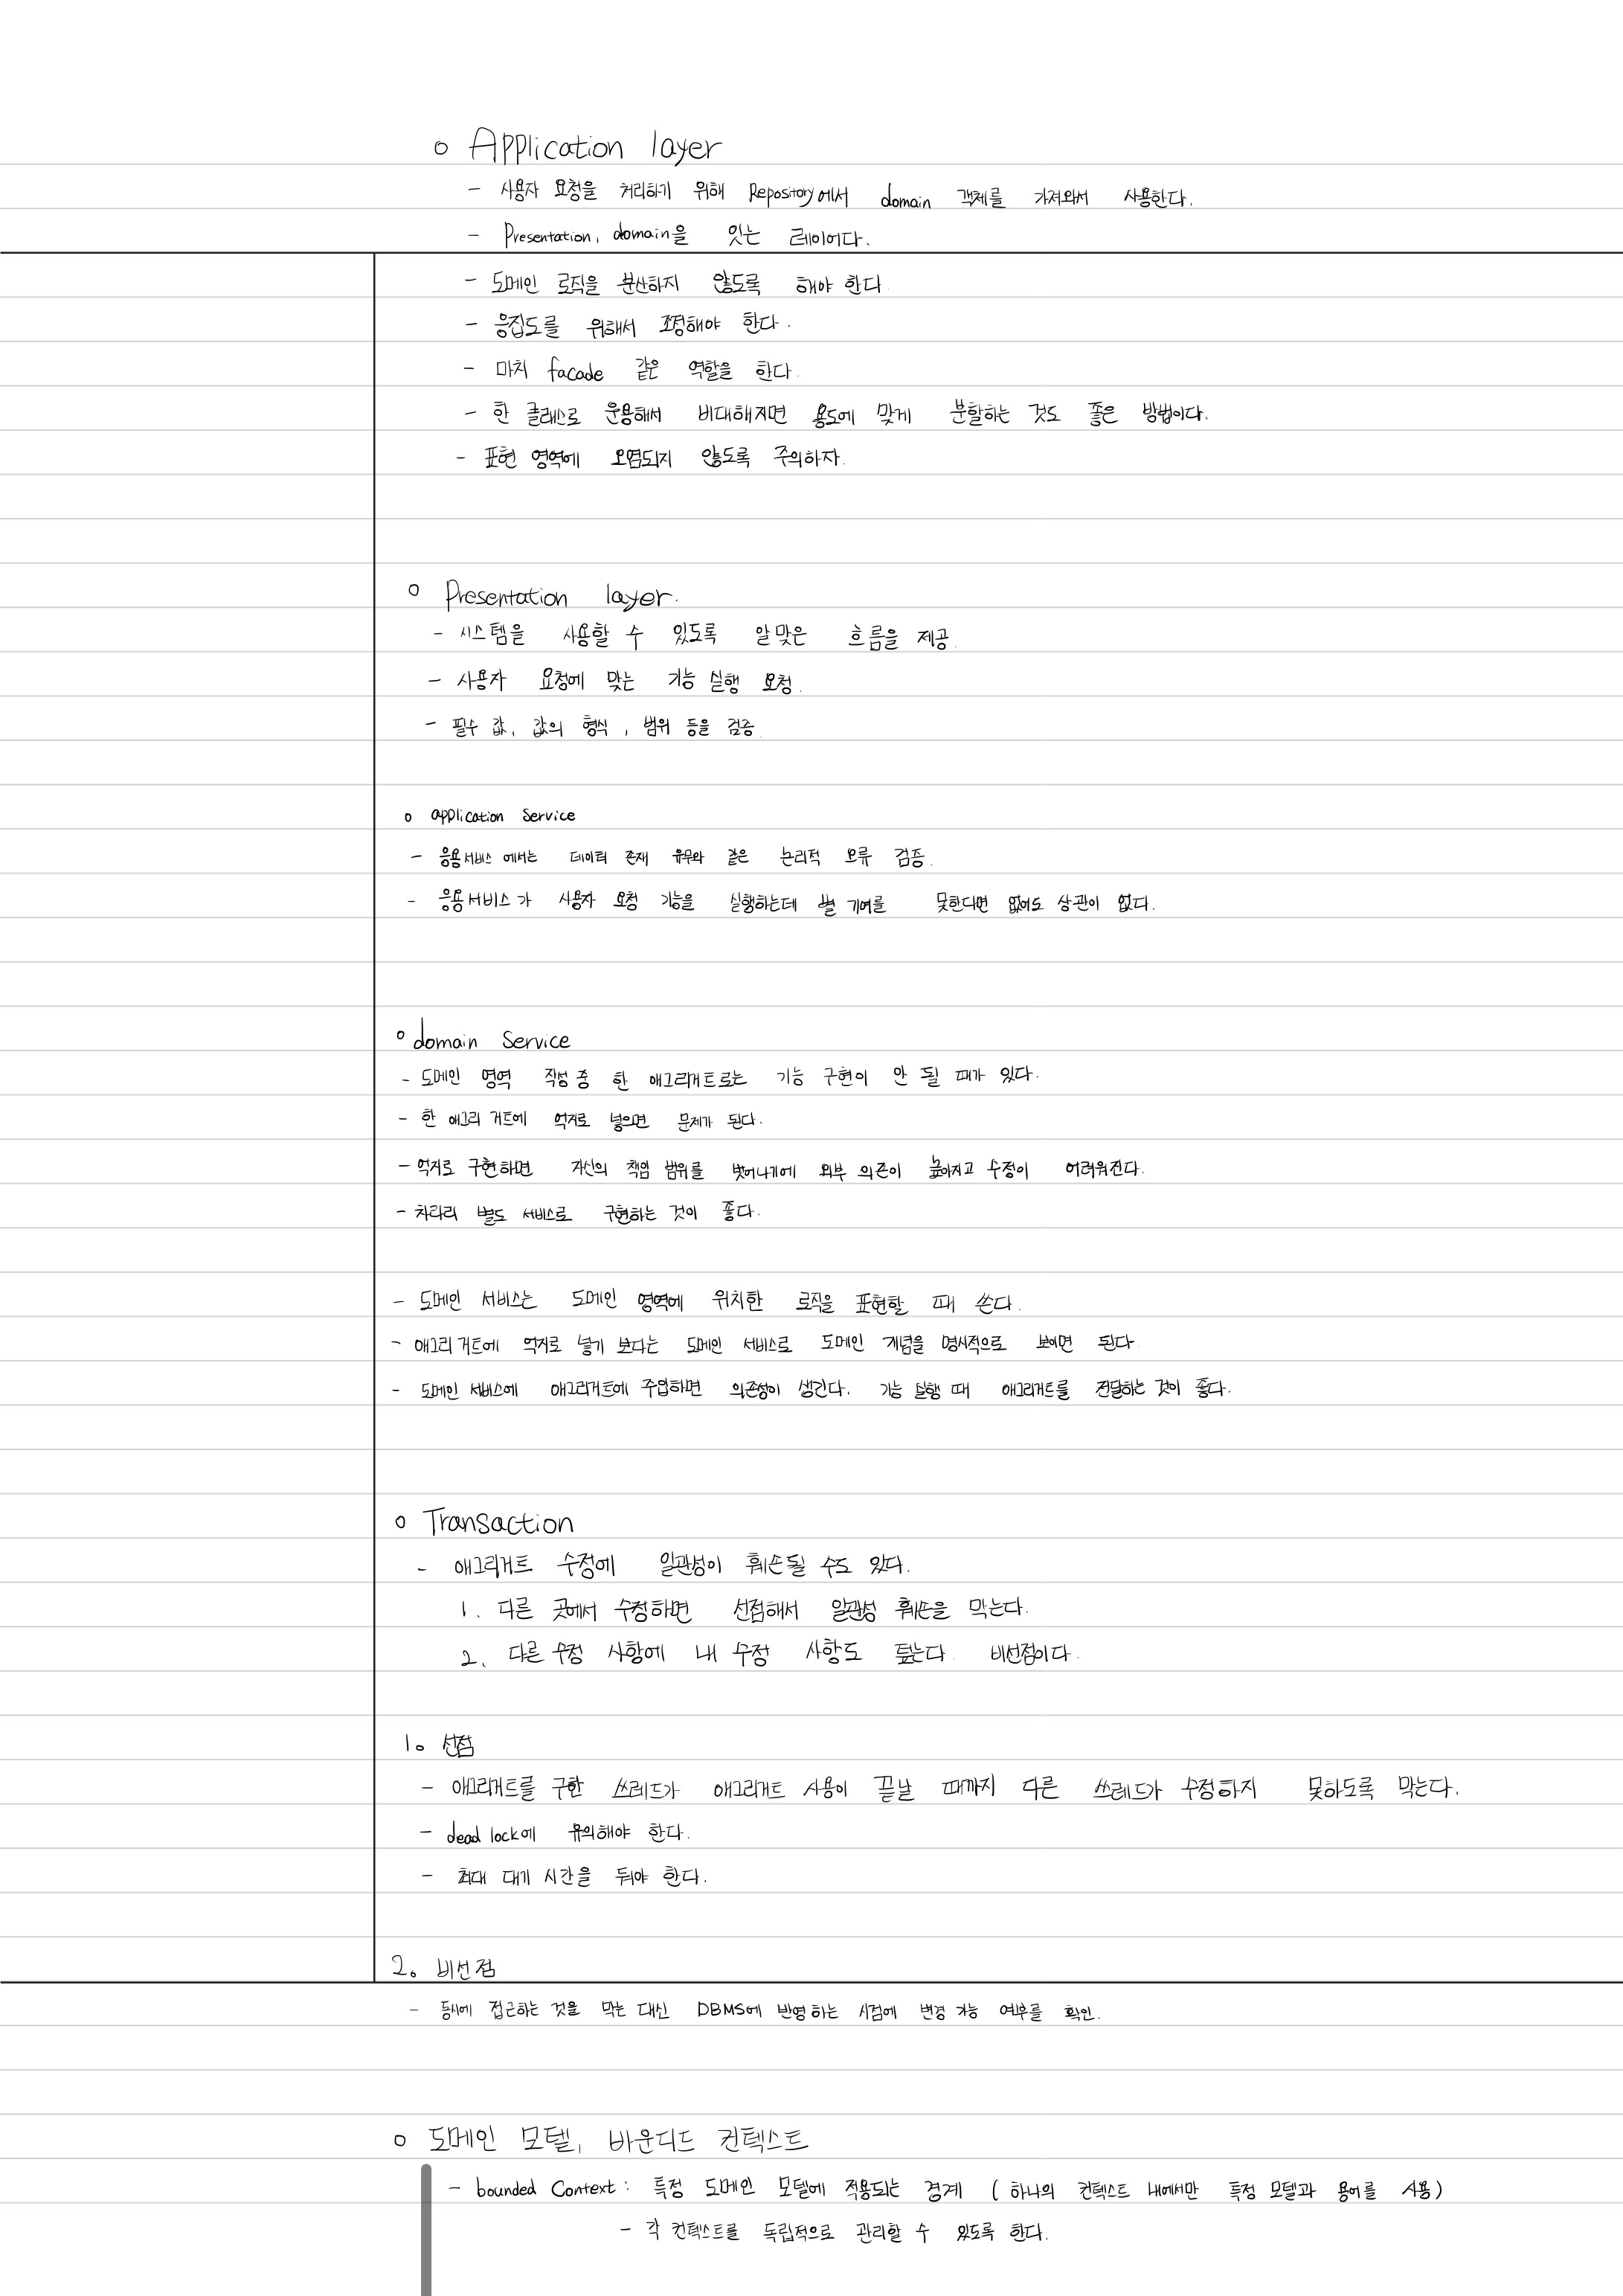 o Application layer
- 사용자 요청을 처리하기 위해 Repository에서 domain 객체를 가져와서 사용한다.
- Presentation, domain을 잇는 레이어다.
- 도메인 로직을 분산하지 않도록 해야 한다.
- 응집도를 위해서 조정해야 한다.
- 마치 facade 같은 역할을 한다.
- 한 클래스로 운용해서 비대해지면 용도에 맞게 분할하는 것도 좋은 방법이다.
- 표현 영역에 오염되지 않도록 주의하자.
o Presentation layer.
- 시스템을 사용할 수 있도록 알맞은 흐름을 제공.
- 사용자 요청에 맞는 기능 실행 요청.
- 필수 값, 값의 형식, 범위 등을 검증.
o application Service
- 응용서비스 에서는 데이터 존재 유무와 같은 논리적 오류 검증.
- 응용서비스가 사용자 요청 기능을 실행하는데 별 기여를 못한다면 없어도 상관이 없다.
o domain Service
- 도메인 영역 작성 중 한 애그리거트로는 기능 구현이 안 될 때가 있다.
- 한 애그리거트에 억지로 넣으면 문제가 된다.
- 억지로 구현하면 자신의 책임 범위를 벗어나기에 외부 의존이 높아지고 수정이 어려워진다.
- 차라리 별도 서비스로 구현하는 것이 좋다.
- 도메인 서비스는 도메인 영역에 위치한 로직을 표현할 때 쓴다.
- 애그리거트에 억지로 넣기 보다는 도메인 서비스로 도메인 개념을 명시적으로 보이면 된다.
- 도메인 서비스에 애그리거트에 주입하면 의존성이 생긴다. 기능 실행 때 애그리거트를 전달하는 것이 좋다.
o Transaction
- 애그리거트 수정에 일관성이 훼손될 수도 있다.
1. 다른 곳에서 수정하면 선점해서 일관성 훼손을 막는다.
2. 다른 수정 사항에 내 수정 사항도 둪는다. 비선점이다.
1. 선점
- 애그리거트를 구한 쓰레드가 애그리거트 사용이 끝날 때까지 다른 쓰레드가 수정하지 못하도록 막는다.
- dead lock에 유의해야 한다.
- 최대 대기 시간을 둬야 한다.
2. 비선점
- 동시에 접근하는 것을 막는 대신 DBMS에 반영하는 시점에 변경 가능 여부를 확인.
o 도메인 모델, 바운디드 컨텍스트
- bounded Context : 특정 도메인 모델에 적용되는 경계 ( 하나의 컨텍스트 내에서만 특정 모델과 용어를 사용)
- 각 컨텍스트를 독립적으로 관리할 수 있도록 한다.